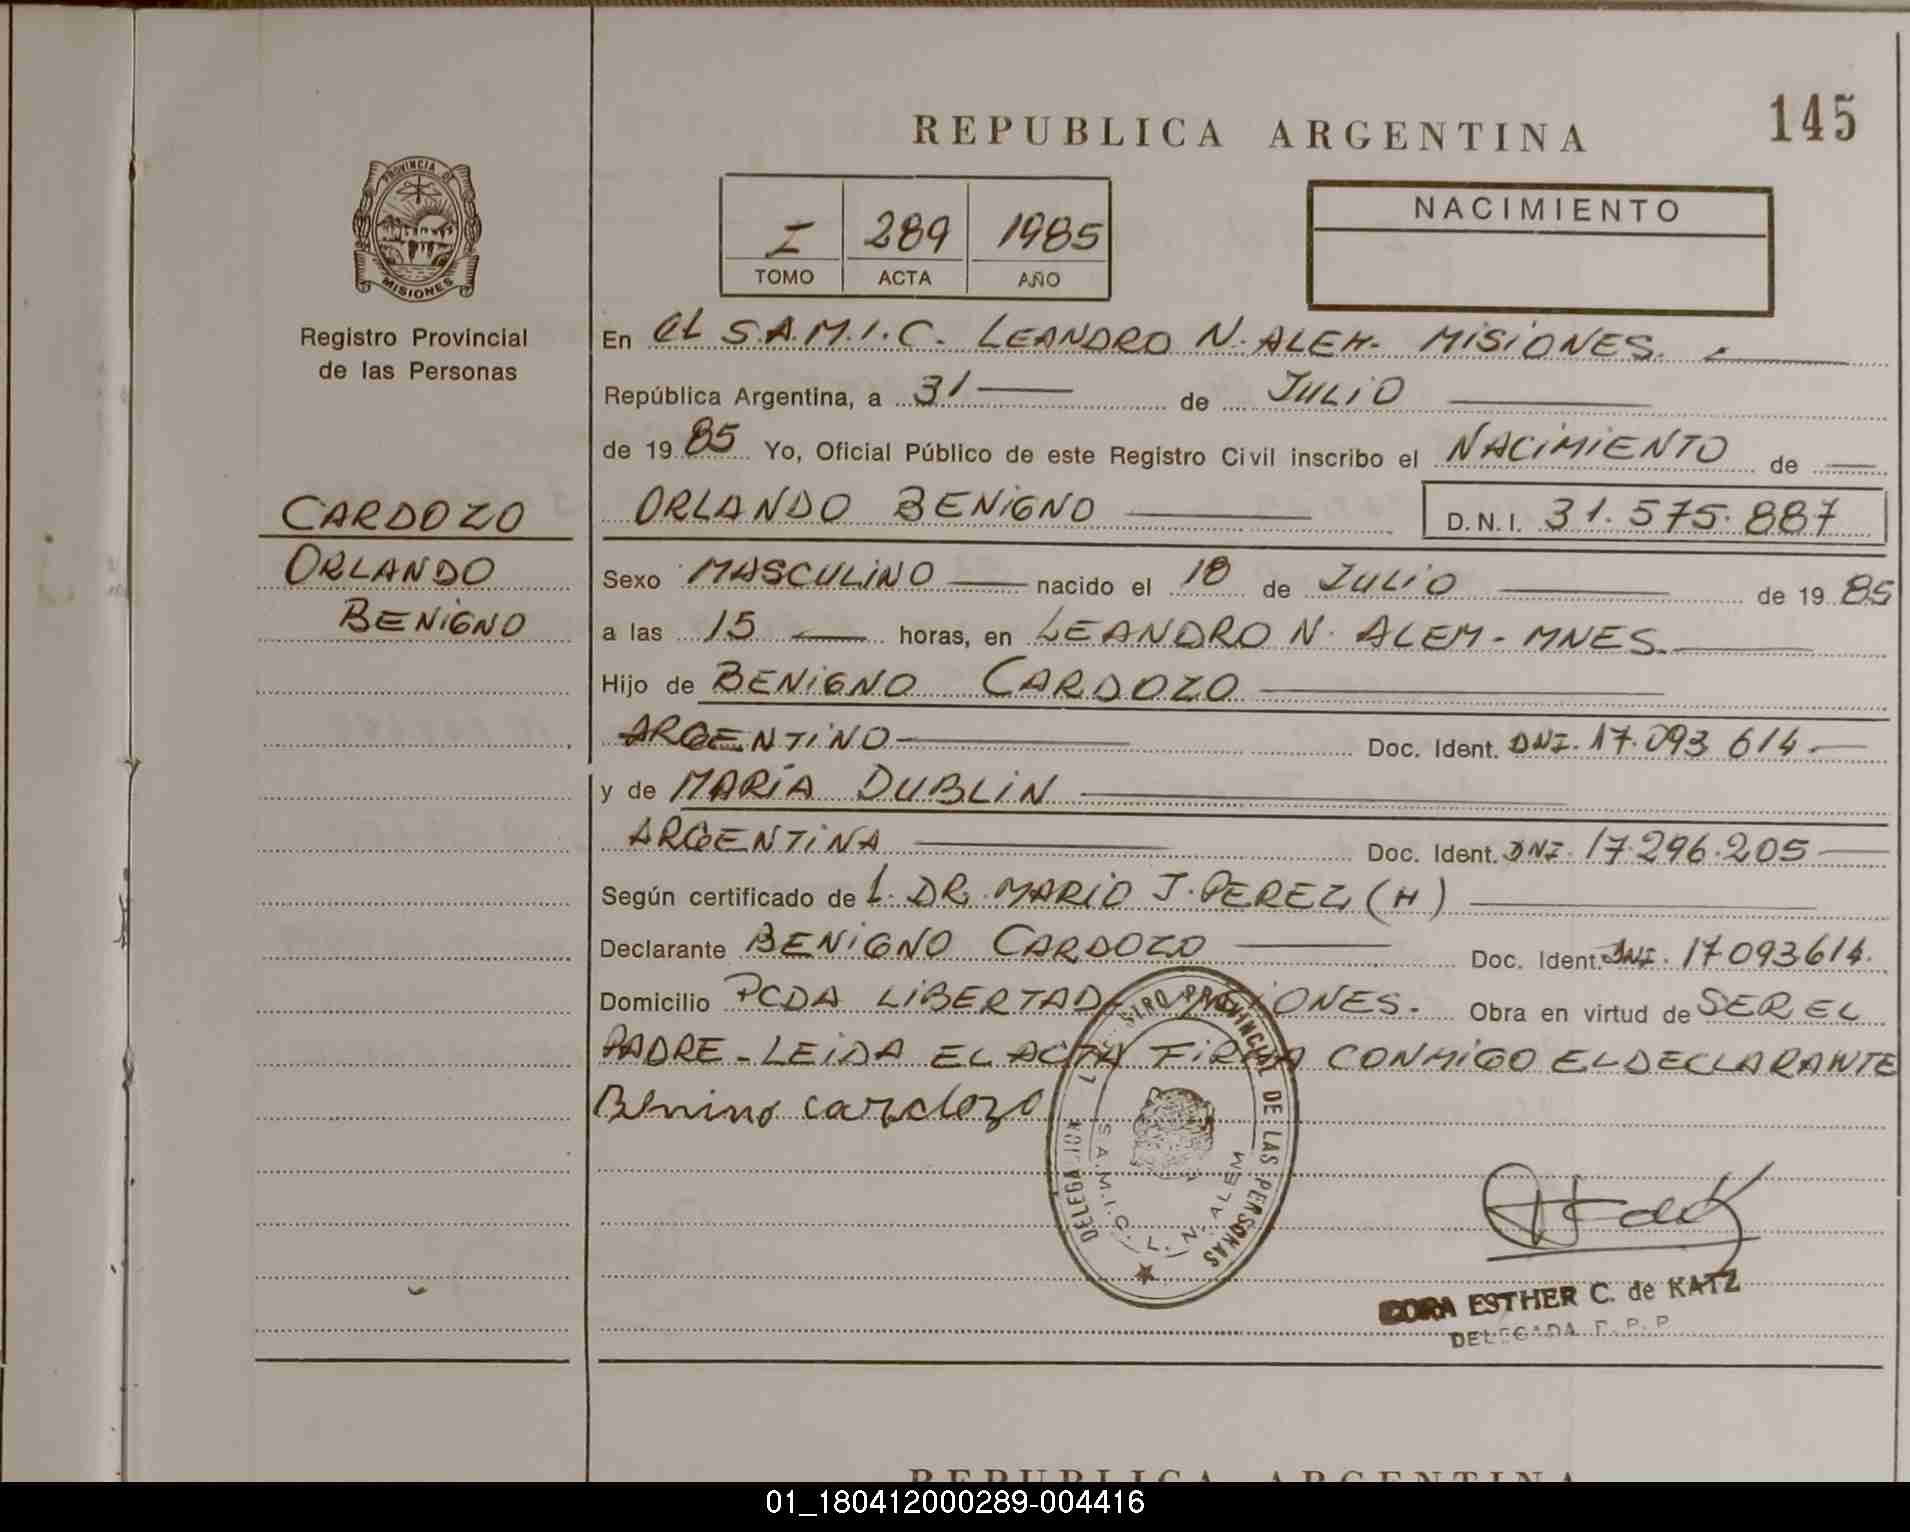 145
REPUBLICA ARGENTINA
PROVINCIA DE
MISIONES
Registro Provincial
de las Personas
I 289 1985
TOMO ACTA AÑO
NACIMIENTO
En EL S.A.M.I.C. LEANDRO N. ALEM - MISIONES.
República Argentina, a 31 de JULIO
de 1985 Yo, Oficial Público de este Registro Civil inscribo el NACIMIENTO de
CARDOZO
ORLANDO
BENIGNO
ORLANDO BENIGNO D.N.I. 31.575.887
Sexo MASCULINO nacido el 18 de JULIO de 1985
a las 15 horas, en LEANDRO N. ALEM - MNES.
Hijo de BENIGNO CARDOZO
ARGENTINO Doc. Ident. DNI. 17.093 614
y de MARÍA DUBLIN
ARGENTINA Doc. Ident. DNI. 17.296.205
Según certificado de L. DR. MARIO J. PEREZ (H)
Declarante BENIGNO CARDOZO Doc. Ident. DNI. 17093614.
Domicilio PCDA LIBERTAD - MISIONES. Obra en virtud de SER EL
PADRE - LEIDA EL ACTA FIRMA CONMIGO EL DECLARANTE
Benino cardozo
PROVINCIAL DE LAS PERSONAS
DELEGACION
S.A.M.I.C. L. N. ALEM
CORA ESTHER C. de KATZ
DELEGADA R. P. P.
REPUBLICA ARGENTINA
01_180412000289-004416